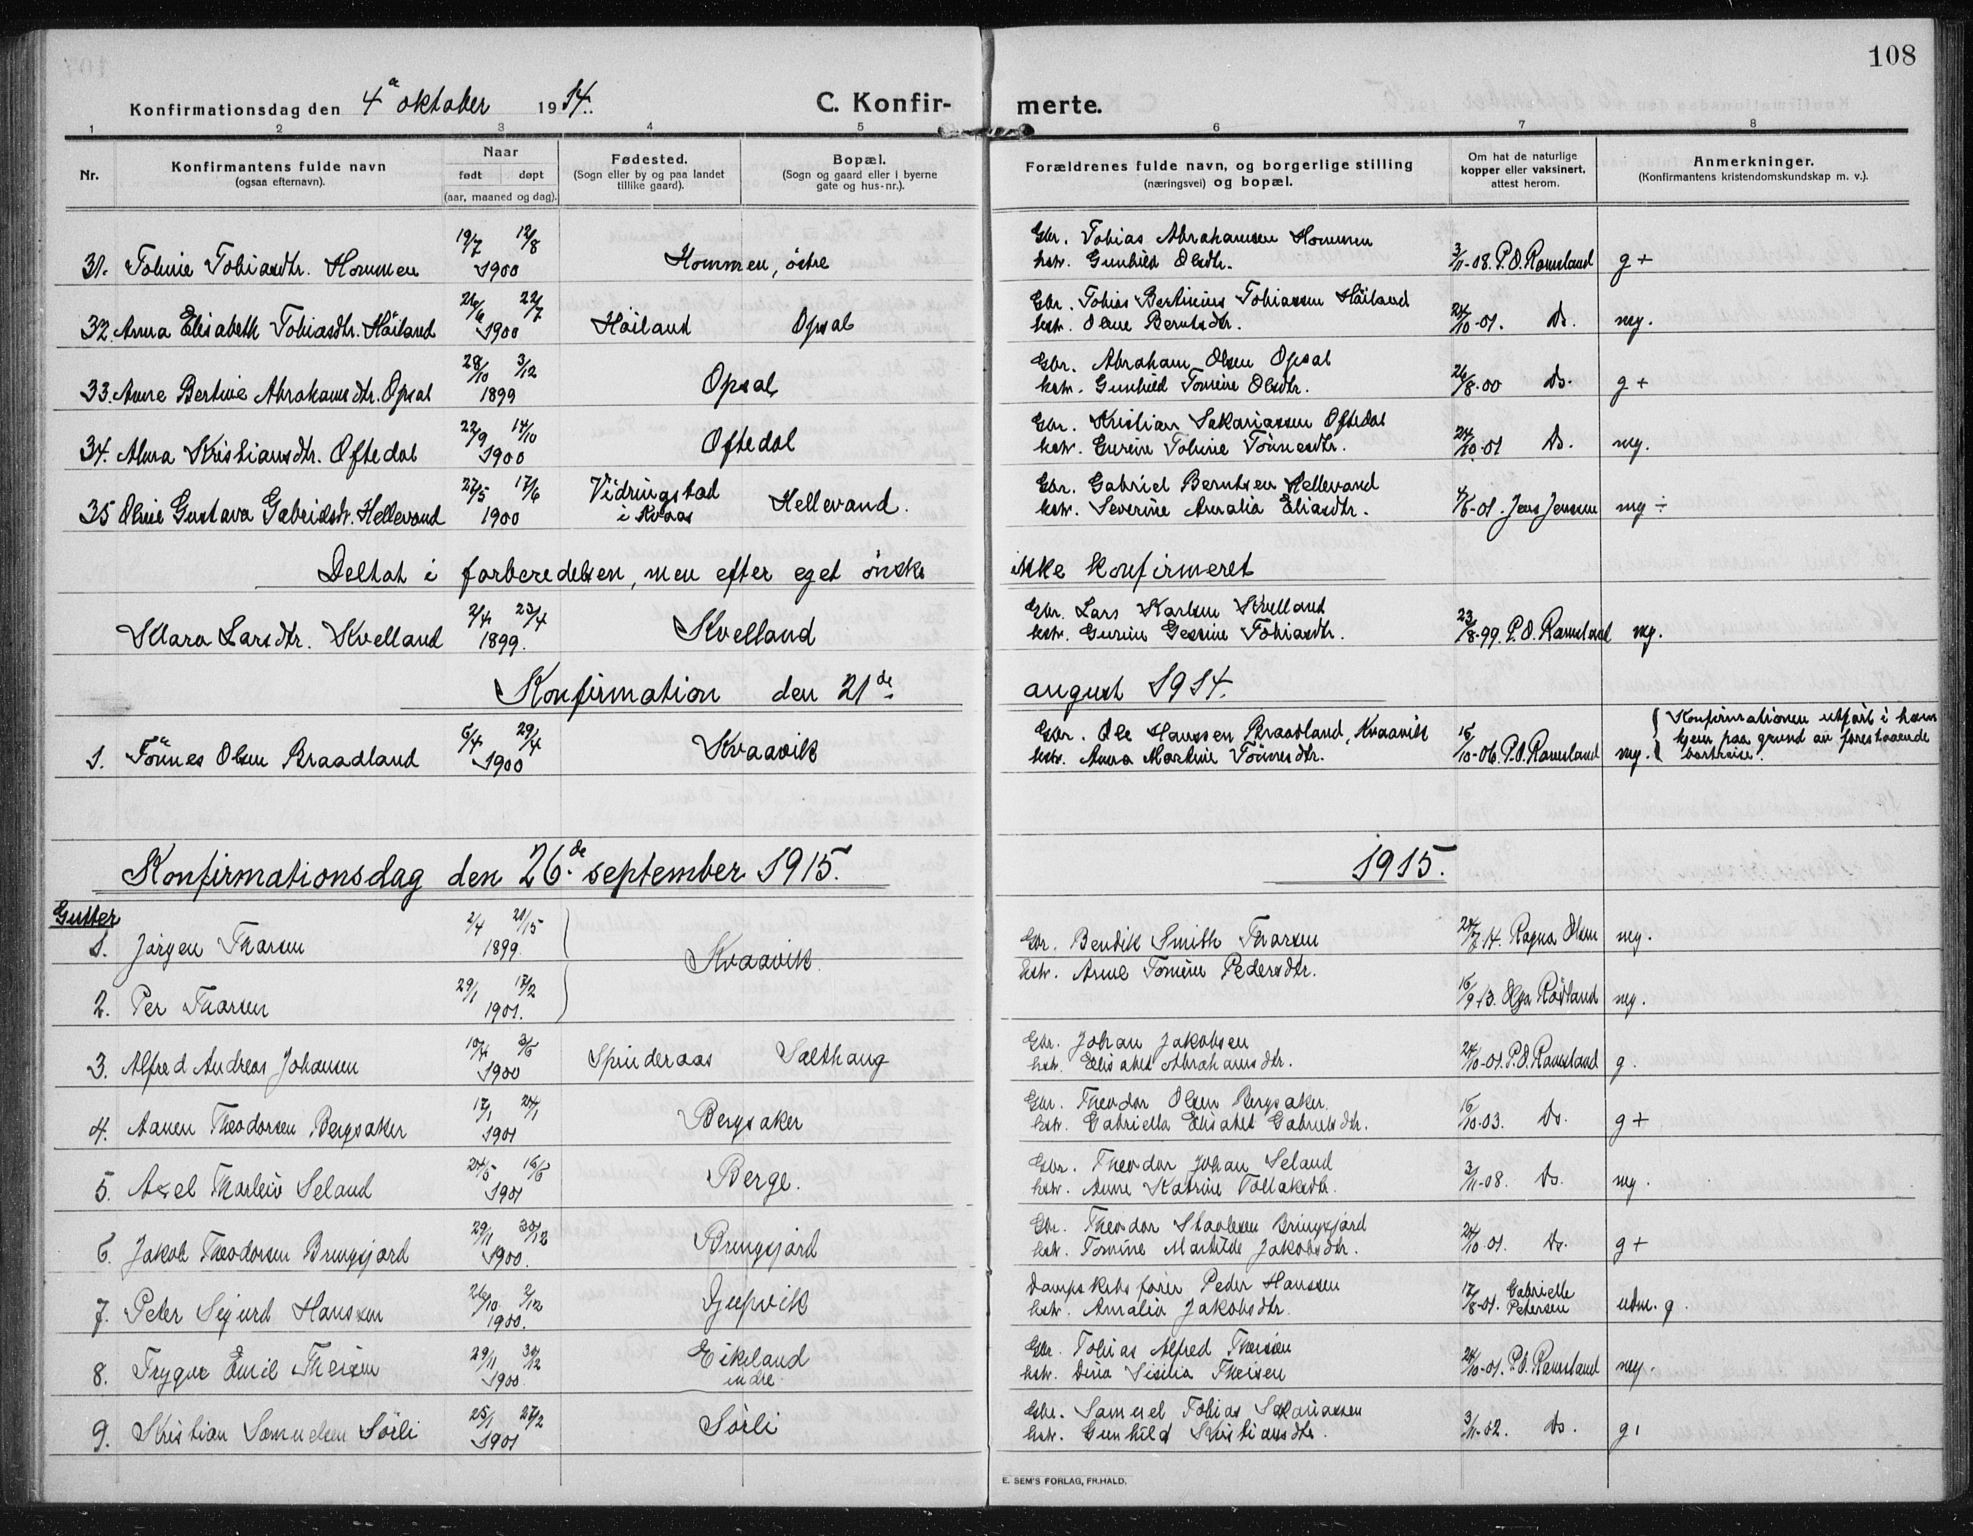 108
Konfirmationsdag den 4de oktober 1914. C. Konfirmerte.
1 2 3 4 5 6 7 8
Nr.
Konfirmantens fulde navn
(ogsaa efternavn).
Naar
født døpt
(aar, maaned og dag).
Fødested.
(Sogn eller by og paa landet
tillike gaard).
Bopæl.
(Sogn og gaard eller i byerne
gate og hus-nr.).
Forældrenes fulde navn, og borgerlige stilling
(næringsvei) og bopæl.
Om hat de naturlige
kopper eller vaksinert,
attest herom.
Anmerkninger.
(Konfirmantens kristendomskundskap m. v.).
19/7 12/8 Gbr. Tobias Abrahamsen Hommen
31. Tobine Tobiasdtr. Hommen 1900 Hommen, östre hstr. Gunhild Olsdtr. 3/11-08. P.O. Ramsland g +
26/6 22/7 Gbr. Tobias Bertinius Tobiassen Höiland
32. Anna Elisabeth Tobiasdtr. Höiland 1900 Höiland Opsal hstr. Oline Berntsdtr. 24/10-01. Do. mg.
28/10 3/12 Gbr. Abraham Olsen Opsal
33. Anne Bertine Abrahamsdtr. Opsal 1899 Opsal hstr. Gunhild Tomine Olsdtr. 26/8-00 Do. g +
22/9 14/10 Gbr. Kristian Sakariassen Oftedal
34. Alma Kristiansdtr. Oftedal 1900 Oftedal hstr. Gurine Tobine Tönnesdtr. 24/10-01 Do. mg.
27/5 17/6 Vidringstad Gbr. Gabriel Berntsen Hellevand
35 Oline Gustava Gabrielsdtr. Hellevand 1900 i Kvaas Hellevand. hstr. Severine Amalia Eliasdtr. 4/6-01. Jens Jensen mg ÷
Deltat i forberedelsen, men efter eget önske ikke konfirmeret
2/4 23/4 Gbr. Lars Karlsen Kvelland
Klara Larsdtr. Kvelland 1899. Kvelland hstr. Gurine Gessine Tobiasdtr. 23/8-99. P.O. Ramsland mg.
Konfirmation den 21de august 1914.
6/4 29/4 Gbr. Ole Hanssen Braadland, Kvaavik Konfirmationen utfört i hjem
1. Tönnes Olsen Braadland 1900 Kvaavik hstr. Anna Martine Tönnesdtr. 16/10-06. P.O. Ramsland mg. paa grund av forestaaende
bortreise.
Konfirmationsdag den 26de september 1915. 1915.
Gutter
1. Jörgen Thorsen 2/4 21/5 1899. Kvaavik. Gbr. Bendik Smith Thorsen 24/7 14. Ragna Olsen mg.
hstr. Anne Tomine Pedersdtr.
2. Per Thorsen 29/1 17/2 1901. 16/9 13. Olga Rödland mg.
10/4 3/6 Gbr. Johan Jakobsen
3. Alfred Andreas Johansen 1900 Spinderaas Salthaug hstr. Elisabet Abrahamsdtr. 24/10-01. P.O. Ramsland g.
17/1 24/1 Gbr. Theodor Olsen Bergsaker.
4. Aanen Theodorsen Bergsaker 1901 Bergsaker hstr. Gabriella Elisabet Gabrielsdtr. 16/10-03. Do. g +
24/5 16/6 Gbr. Theodor Johan Seland
5. Axel Thorleiv Seland 1901 Berge. hstr. Anne Katrine Tollaksdtr. 3/11-08. Do. mg.
29/11 30/12 Gbr. Theodor Staalesen Bringsjord
6. Jakob Theodorsen Bringsjord 1900. Bringsjord hstr. Tomine Matilde Jakobsdtr. 24/10-01. Do. g +
26/10 2/12 Dampskibsförer Peder Hanssen 17/8-01. Gabrielle
7. Peter Sigurd Hanssen 1900. Djupvik hstr. Amalia Jakobsdtr. Petersen udm. g.
29/11 30/12 Eikeland Gbr. Tobias Alfred Theisen
8. Trygve Emil Theisen 1900 indre hstr. Dina Sisilia Theisen 24/10-01. P.O. Ramsland mg.
25/1 27/2 Gbr. Samuel Tobias Sakariassen
9. Kristian Samuelsen Sörli 1901 Sörli hstr. Gunhild Kristiansdtr. 3/11-02. Do. g
E. SEM'S FORLAG, FR.HALD.